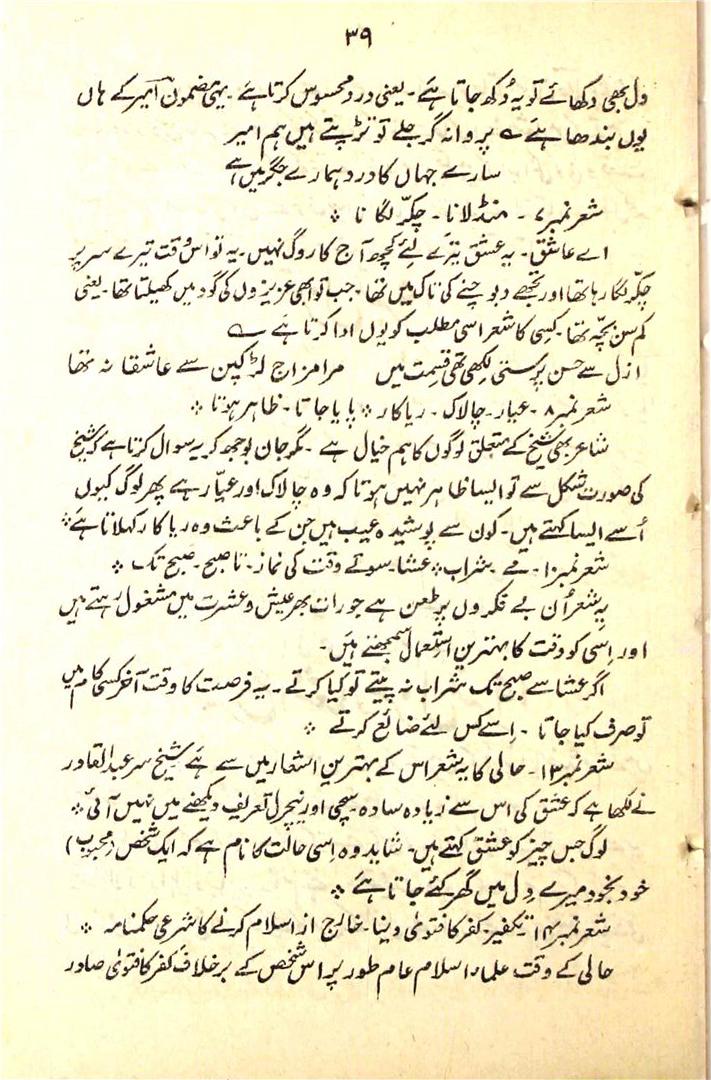 ۳۹
دل بھی دکھائے تو یہ دُکھ جاتا ہے ۔ یعنی درد محسوس کرتا ہے ۔ یہی مضمون امیر کے ہاں
یوں بندھا ہے ؎ پروانہ گر جلے تو تڑپتے ہیں ہم امیر
سارے جہاں کا درد ہمارے جگر میں ہے
شعر نمبر ۷ ۔ منڈلانا ۔ چکر لگانا ٭
اے عاشق ۔ یہ عشق تیرے لئے کچھ آج کا روگ نہیں ۔ یہ تو اس وقت تیرے سر پر
چکر لگا رہا تھا اور تجھے دبوچنے کی تاک میں تھا ۔ جب تو ابھی عزیزوں کی گود میں کھیلتا تھا ۔ یعنی
کم سن بچہ تھا ۔ کسی کا شعر اسی مطلب کو یوں ادا کرتا ہے ؎
ازل سے حسن پرستی لکھی تھی قسمت میں مرا مزاج لڑکپن سے عاشقانہ تھا
شعر نمبر ۸ ۔ عیار ۔ چالاک ۔ ریاکار ٭ پایا جاتا ۔ ظاہر ہوتا ٭
شاعر بھی شیخ کے متعلق لوگوں کا ہم خیال ہے ۔ مگر جان بوجھ کر یہ سوال کرتا ہے کہ شیخ
کی صورت شکل سے تو ایسا ظاہر نہیں ہوتا کہ وہ چالاک اور عیار ہے پھر لوگ کیوں
اُسے ایسا کہتے ہیں ۔ کون سے پوشیدہ عیب ہیں جن کے باعث وہ ریاکار کہلاتا ہے ٭
شعر نمبر ۱۰ ۔ مے ۔ شراب ٭ عشا ۔ سوتے وقت کی نماز ۔ تا صبح ۔ صبح تک ٭
یہ شعر اُن بے فکروں پر طعن ہے جو رات بھر عیش و عشرت میں مشغول رہتے ہیں
اور اِسی کو وقت کا بہترین اِستعمال سمجھتے ہیں ۔
اگر عشا سے صبح تک شراب نہ پیتے تو کیا کرتے ۔ یہ فرصت کا وقت آخر کسی کام میں
تو صرف کیا جاتا ۔ اِسے کس لئے ضائع کرتے ٭
شعر نمبر ۱۳ ۔ حالی کا یہ شعر اس کے بہترین اشعار میں سے ہے شیخ سر عبدالقادر
نے لکھا ہے کہ عشق کی اس سے زیادہ سادہ ۔ سچی اور نیچرل تعریف دیکھنے میں نہیں آئی ٭
لوگ جس چیز کو عشق کہتے ہیں ۔ شاید وہ اِسی حالت کا نام ہے کہ ایک شخص (محبوب)
خود بخود میرے دِل میں گھر کئے جاتا ہے ٭
شعر نمبر ۱۴ ۔ تکفیر ۔ کفر کا فتویٰ دینا ۔ خارج از اسلام کرنے کا شرعی حکمنامہ ٭
حالی کے وقت علماءِ اسلام عام طور پر اس شخص کے برخلاف کفر کا فتویٰ صادر